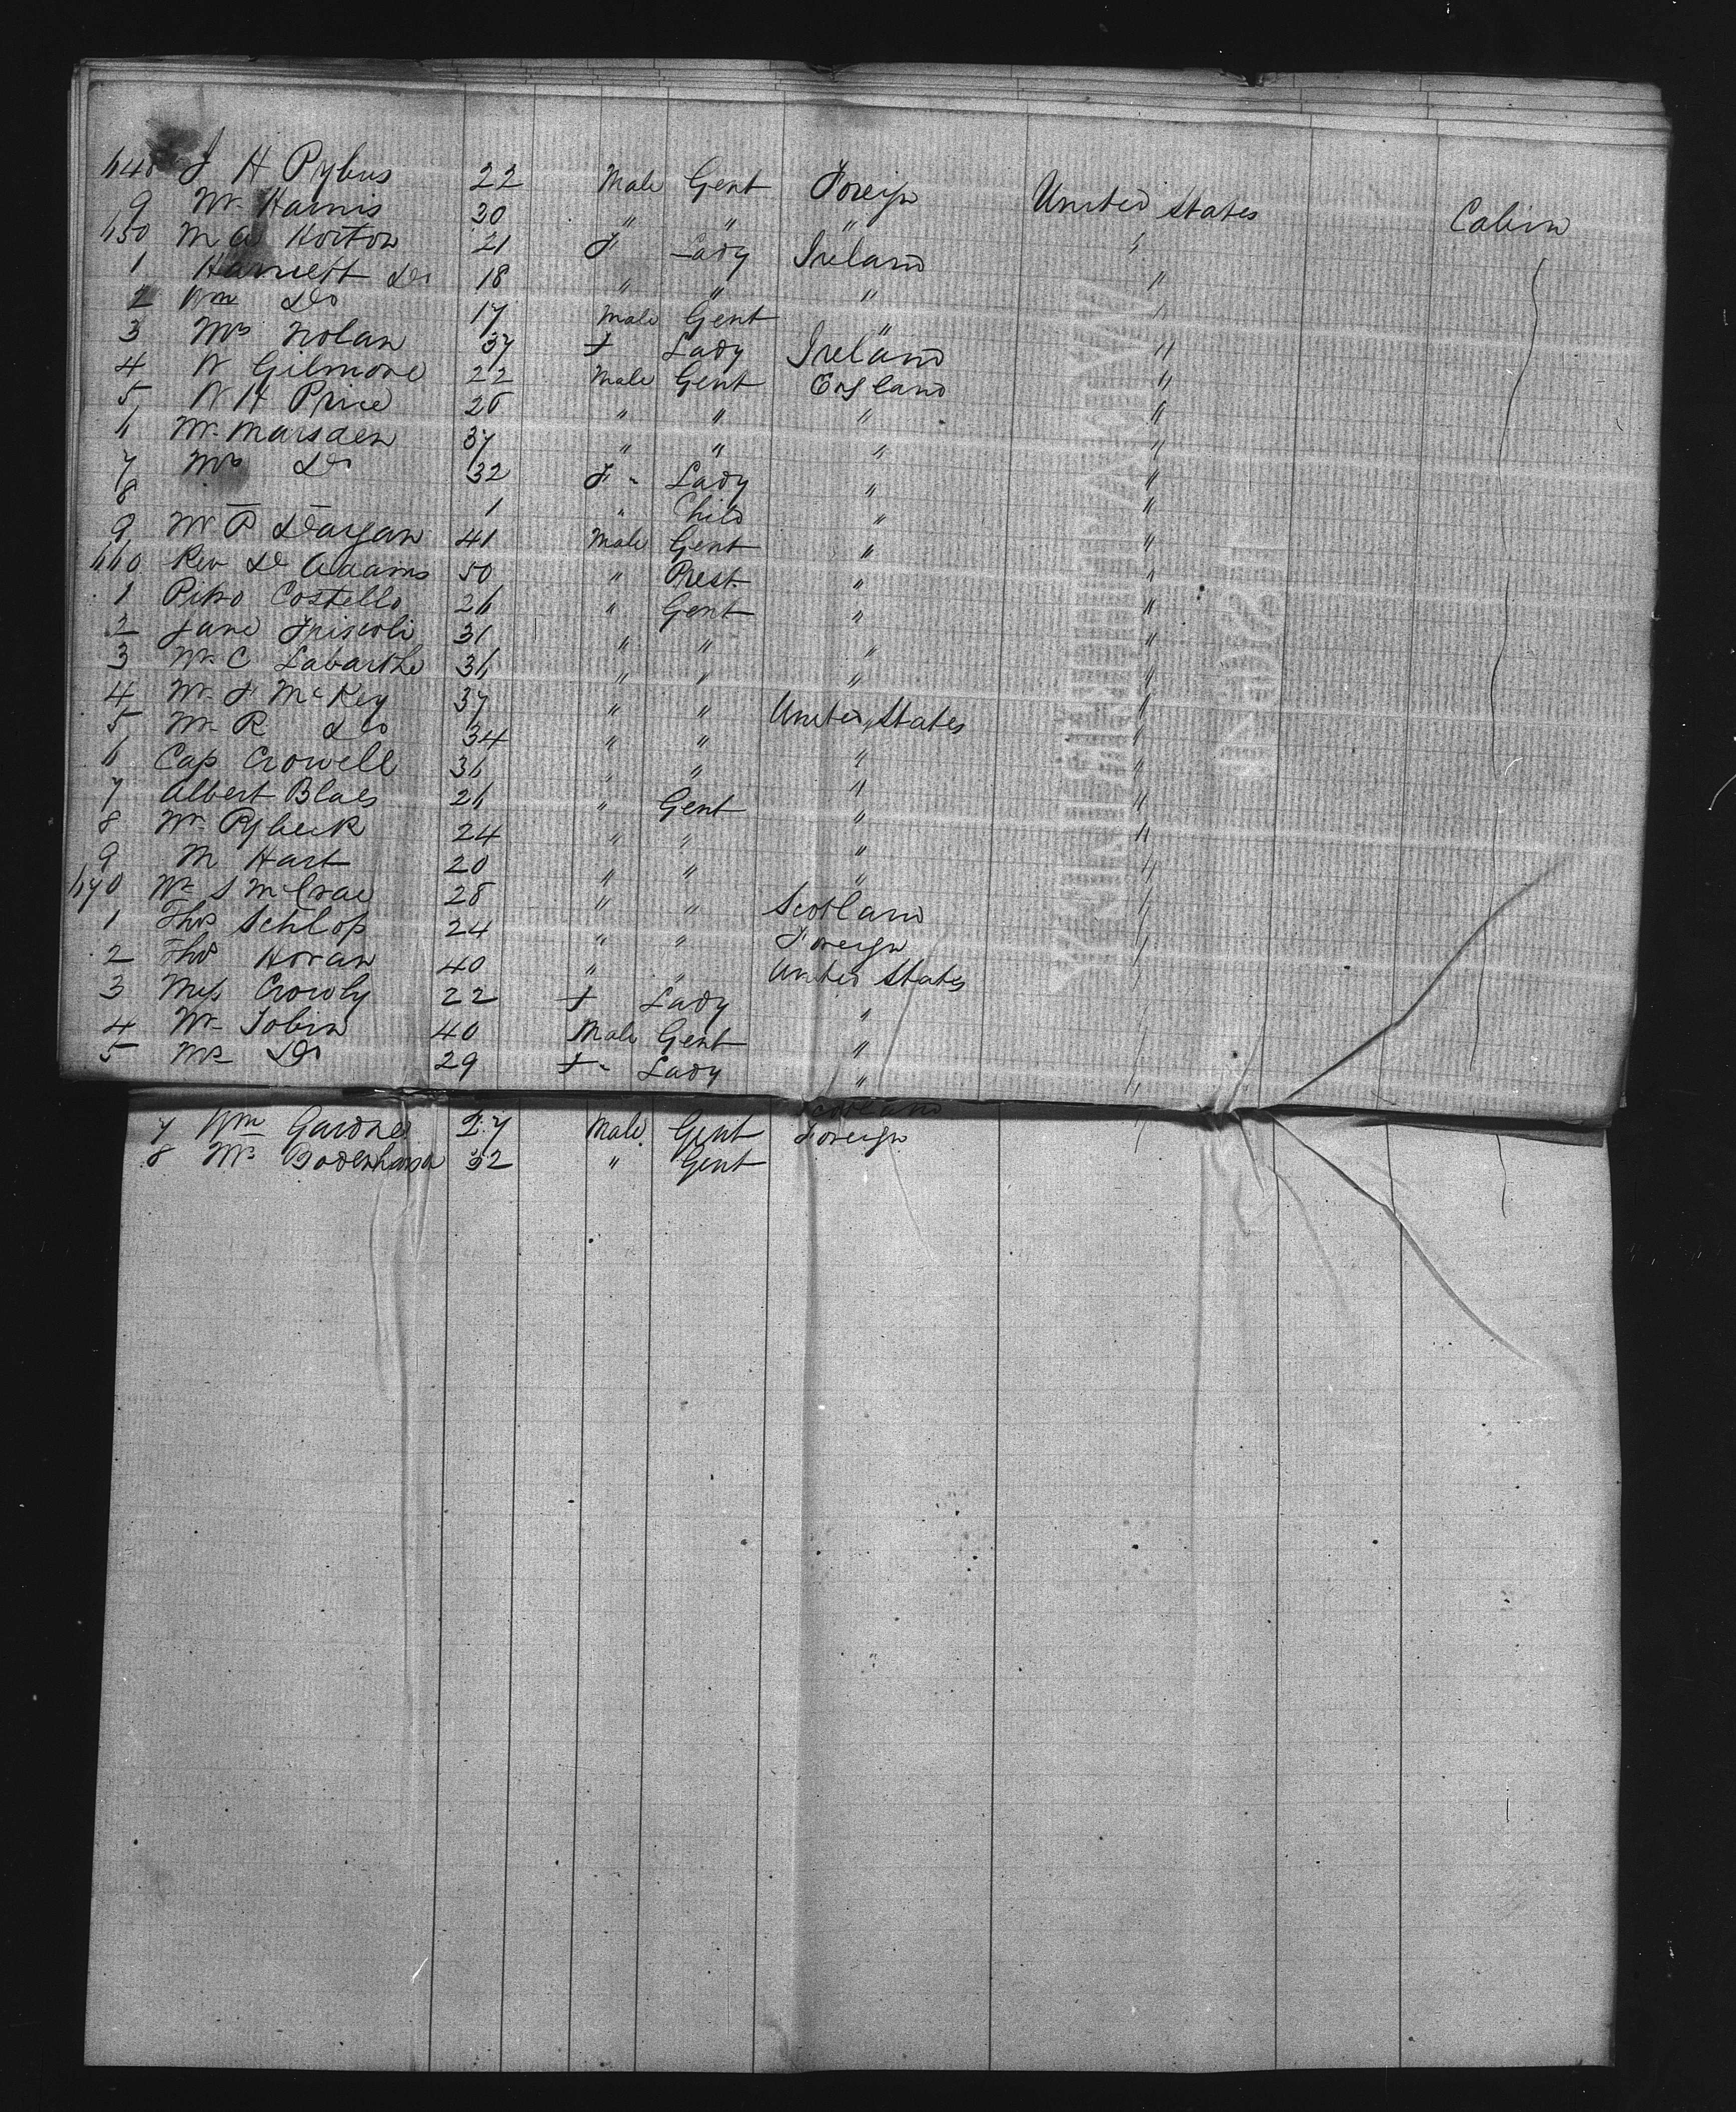 648 J H Pybus 22 Male Gent Foreign United States Cabin
9 Mr Harris 30 " " " "
650 M A Horton 21 F Lady Ireland "
1 Harriett Do 18 " " " "
2 Wm Do 17 Male Gent " "
3 Mrs Nolan 37 F Lady Ireland "
4 W Gilmore 22 Male Gent England "
5 W H Price 28 " " " "
6 Mr Marsden 37 " " " "
7 Mrs Do 32 F " Lady " "
8 1 " Child " "
9 Mr P Dargan 41 Male Gent " "
660 Rev Dr Adams 50 " Prest " "
1 Costello 26 " Gent " "
2 31 " " " "
3 Mr C Labarthe 36 " " " "
4 Mr J McKey 37 " " United States "
5 Mr R Do 34 " " " "
6 Cap Crowell 36 " " " "
7 Albert Blaes 26 " Gent " "
8 Mr 24 " " " "
9 M Hart 20 " " " "
670 Mr S McCrae 28 " " Scotland "
1 Thos Schlop 24 " " Foreign "
2 Thos Horan 40 " " United States "
3 Miss Crowly 22 F Lady " "
4 Mr Tobin 40 Male Gent " "
5 Mrs Do 29 F " Lady " "
7 Wm Gardner 27 Male Gent Foreign "
8 Mr 32 " Gent